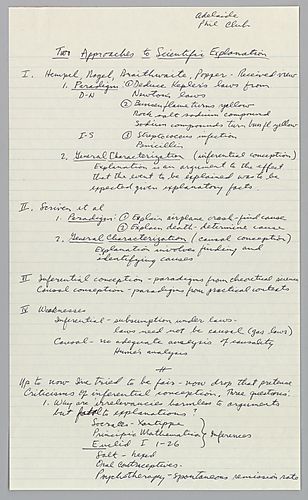 Adelaide
Phil Club
Two Approaches to Scientific Explanation
I. Hempel, Nagel, Braithwaite, Popper - Received view
1. Paradigms ① Deduce Kepler's laws from
D-N Newton's laws
② Bunsen flame turns yellow
Rock salt sodium compound
Sodium compounds turn bunsen fl yellow
I-S ③ Streptococcus infection
Penicillin
2. General Characterization (inferential conception)
Explanation is an argument to the effect
that the event to be explained was to be
expected given explanatory facts.
II. Scriven et al
1. Paradigms: ① Explain airplane crash - find cause
② Explain death - determine cause
2. General Characterization (causal conception)
Explanation involves finding and
identifying causes
III Inferential conception - paradigms from theoretical science
Causal conception - paradigms from practical contexts
IV Weaknesses
Inferential - subsumption under laws -
laws need not be causal (gas laws)
Causal - no adequate analysis of causality
Hume's analysis
#
Up to now I've tried to be fair - now drop that pretense
Criticisms of inferential conception. Three questions:
1. Why are irrelevancies harmless to arguments
but fatal to explanations?
Socrates - Xantippe
Principia Mathematica } Inferences
Euclid I 1-26
Salt - hexed
Oral contraceptives
Psychotherapy - spontaneous remission rate